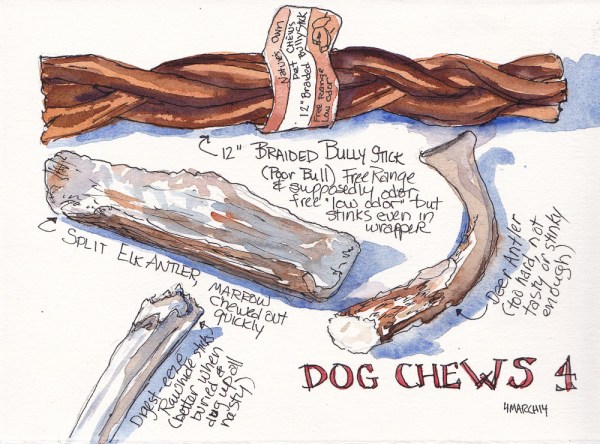 Nature's Own
Pet CHEWS
12" Braided Bully Stick
Free Range
Low odor
12" BRAIDED BULLY STICK
(Poor Bull) Free Range
& supposedly odor
free "low odor" but
stinks even in
wrapper
SPLIT ELK ANTLER, MARROW
chewed out
quickly
Deer Antler
(too hard, not
tasty or stinky
enough)
Digest-eeze
Rawhide sticks
(better when
buried &
dug up all
nasty)
DOG CHEWS 4
4MARCH14